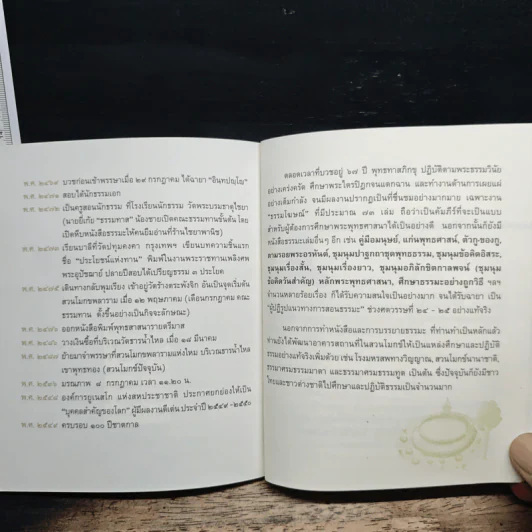 พ.ศ. ๒๔๖๙ บวชก่อนเข้าพรรษาเมื่อ ๒๙ กรกฎาคม ได้ฉายา "อินทปญฺโญ"
พ.ศ. ๒๔๗๑ สอบได้นักธรรมเอก
พ.ศ. ๒๔๗๒ เป็นครูสอนนักธรรม ที่โรงเรียนนักธรรม วัดพระบรมธาตุไชยา
(นายยี่เกย "ธรรมทาส" น้องชายเปิดคณะธรรมทานขั้นต้น โดย
เปิดหีบหนังสือธรรมะให้คนยืมอ่านที่ร้านไชยาพานิช)
พ.ศ. ๒๔๗๓ เรียนบาลีที่วัดปทุมคงคา กรุงเทพฯ เขียนบทความชิ้นแรก
ชื่อ "ประโยชน์แห่งทาน" พิมพ์ในงานพระราชทานเพลิงศพ
พระอุปัชฌาย์ ปลายปีสอบได้เปรียญธรรม ๓ ประโยค
เดินทางกลับพุมเรียง เข้าอยู่วัดร้างตระพังจิก อันเป็นจุดเริ่มต้น
สวนโมกขพลาราม เมื่อ ๑๒ พฤษภาคม (เดือนกรกฎาคม คณะ
ธรรมทาน ตั้งขึ้นอย่างเป็นกิจจะลักษณะ)
ออกหนังสือพิมพ์พุทธสาสนารายตรีมาส
วางเงินซื้อที่บริเวณวัดธารน้ำไหล เมื่อ ๑๘ มีนาคม
ย้ายมาจำพรรษาที่สวนโมกขพลารามแห่งใหม่ บริเวณธารน้ำไหล
เขาพุทธทอง (สวนโมกข์ปัจจุบัน)
มรณภาพ ๘ กรกฎาคม เวลา ๑๑.๒๐ น.
องค์การยูเนสโก แห่งสหประชาชาติ ประกาศยกย่องให้เป็น
"บุคคลสำคัญของโลก" ผู้มีผลงานดีเด่น ประจำปี ๒๕๔๙ -๒๕๕๐
พ.ศ. ๒๕๔๙ ครบรอบ ๑๐๐ ปีชาตกาล
ตลอดเวลาที่บวชอยู่ ๖๗ ปี พุทธทาสภิกขุ ปฏิบัติตามพระธรรมวินัย
อย่างเคร่งครัด ศึกษาพระไตรปิฎกจนแตกฉาน และทำงานด้านการเผยแผ่
อย่างเต็มกำลัง จนมีผลงานปรากฏเป็นที่ชื่นชมอย่างมากมาย เฉพาะงาน
"ธรรมโฆษณ์" ที่มีประมาณ ๗๓ เล่ม ถือว่าเป็นคัมภีร์ที่จะเป็นแบบ
สำหรับผู้ต้องการศึกษาพระพุทธศาสนาได้เป็นอย่างดี นอกจากนั้นก็ยังมี
หนังสือธรรมะเล่มอื่นๆ อีก เช่น คู่มือมนุษย์, แก่นพุทธศาสน์, ตัวกู-ของกู,
ตามรอยพระอรหันต์, ชุมนุมปาฐกถาชุดพุทธธรรม, ชุมนุมข้อคิดอิสระ,
ชุมนุมเรื่องสั้น, ชุมนุมเรื่องยาว, ชุมนุมอภิลักขิตกาลพจน์ (ชุมนุม
ล้อคิดวันสำคัญ) หลักพระพุทธศาสนา, ศึกษาธรรมะอย่างถูกวิธี ฯลฯ
จำนวนหลายร้อยเรื่อง ก็ได้รับความสนใจเป็นอย่างมาก จนได้รับฉายา เป็น
"ผู้ปฏิรูปแนวทางการสอนธรรมะ" ช่วงศตวรรษที่ ๒๔ - ๒๕ อย่างแท้จริง
นอกจากการทำหนังสือและการบรรยายธรรม ที่ท่านทำเป็นหลักแล้ว
ท่านยังได้พัฒนาอาคารสถานที่ในสวนโมกข์ให้เป็นแหล่งศึกษาและปฏิบัติ
ธรรมอย่างแท้จริงเพิ่มด้วย เช่น โรงมหรสพทางวิญญาณ, สวนโมกข์นานาชาติ,
ธรรมาศรมธรรมมาตา และธรรมาศรมธรรมทูต เป็นต้น ซึ่งปัจจุบันก็ยังมีชาว
ไทยและชาวต่างชาติไปศึกษาและปฏิบัติธรรมเป็นจำนวนมาก